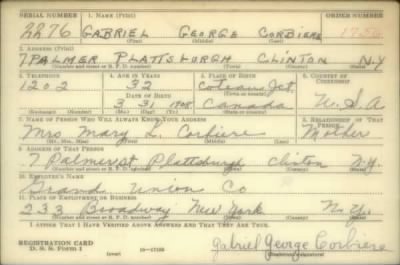 SERIAL NUMBER 1. NAME (Print) ORDER NUMBER
2276 GABRIEL GEORGE CORBIERE
(First) (Middle) (Last)
2. ADDRESS (Print)
7 PALMER PLATTSBURGH CLINTON N.Y
(Number and street or R. F. D. number) (Town) (County) (State)
3. TELEPHONE 4. AGE IN YEARS 5. PLACE OF BIRTH 6. COUNTRY OF CITIZENSHIP
1202 32 Coteau Jct.
DATE OF BIRTH (Town or county)
3 31 1908 Canada U.S.A
(Exchange) (Number) (Mo.) (Day) (Yr.) (State or country)
7. NAME OF PERSON WHO WILL ALWAYS KNOW YOUR ADDRESS 8. RELATIONSHIP OF THAT PERSON
Mrs Mary L. Corbiere Mother
(Mr., Mrs., Miss) (First) (Middle) (Last)
9. ADDRESS OF THAT PERSON
7 Palmer st Plattsburgh Clinton N.Y.
(Number and street or R. F. D. number) (Town) (County) (State)
10. EMPLOYER'S NAME
Grand Union Co
11. PLACE OF EMPLOYMENT OR BUSINESS
233 Broadway New York N.Y.
(Number and street or R. F. D. number) (Town) (County) (State)
I AFFIRM THAT I HAVE VERIFIED ABOVE ANSWERS AND THAT THEY ARE TRUE.
REGISTRATION CARD
D. S. S. Form 1 (over) 16-17105
Gabriel George Corbiere
(Registrant's signature)